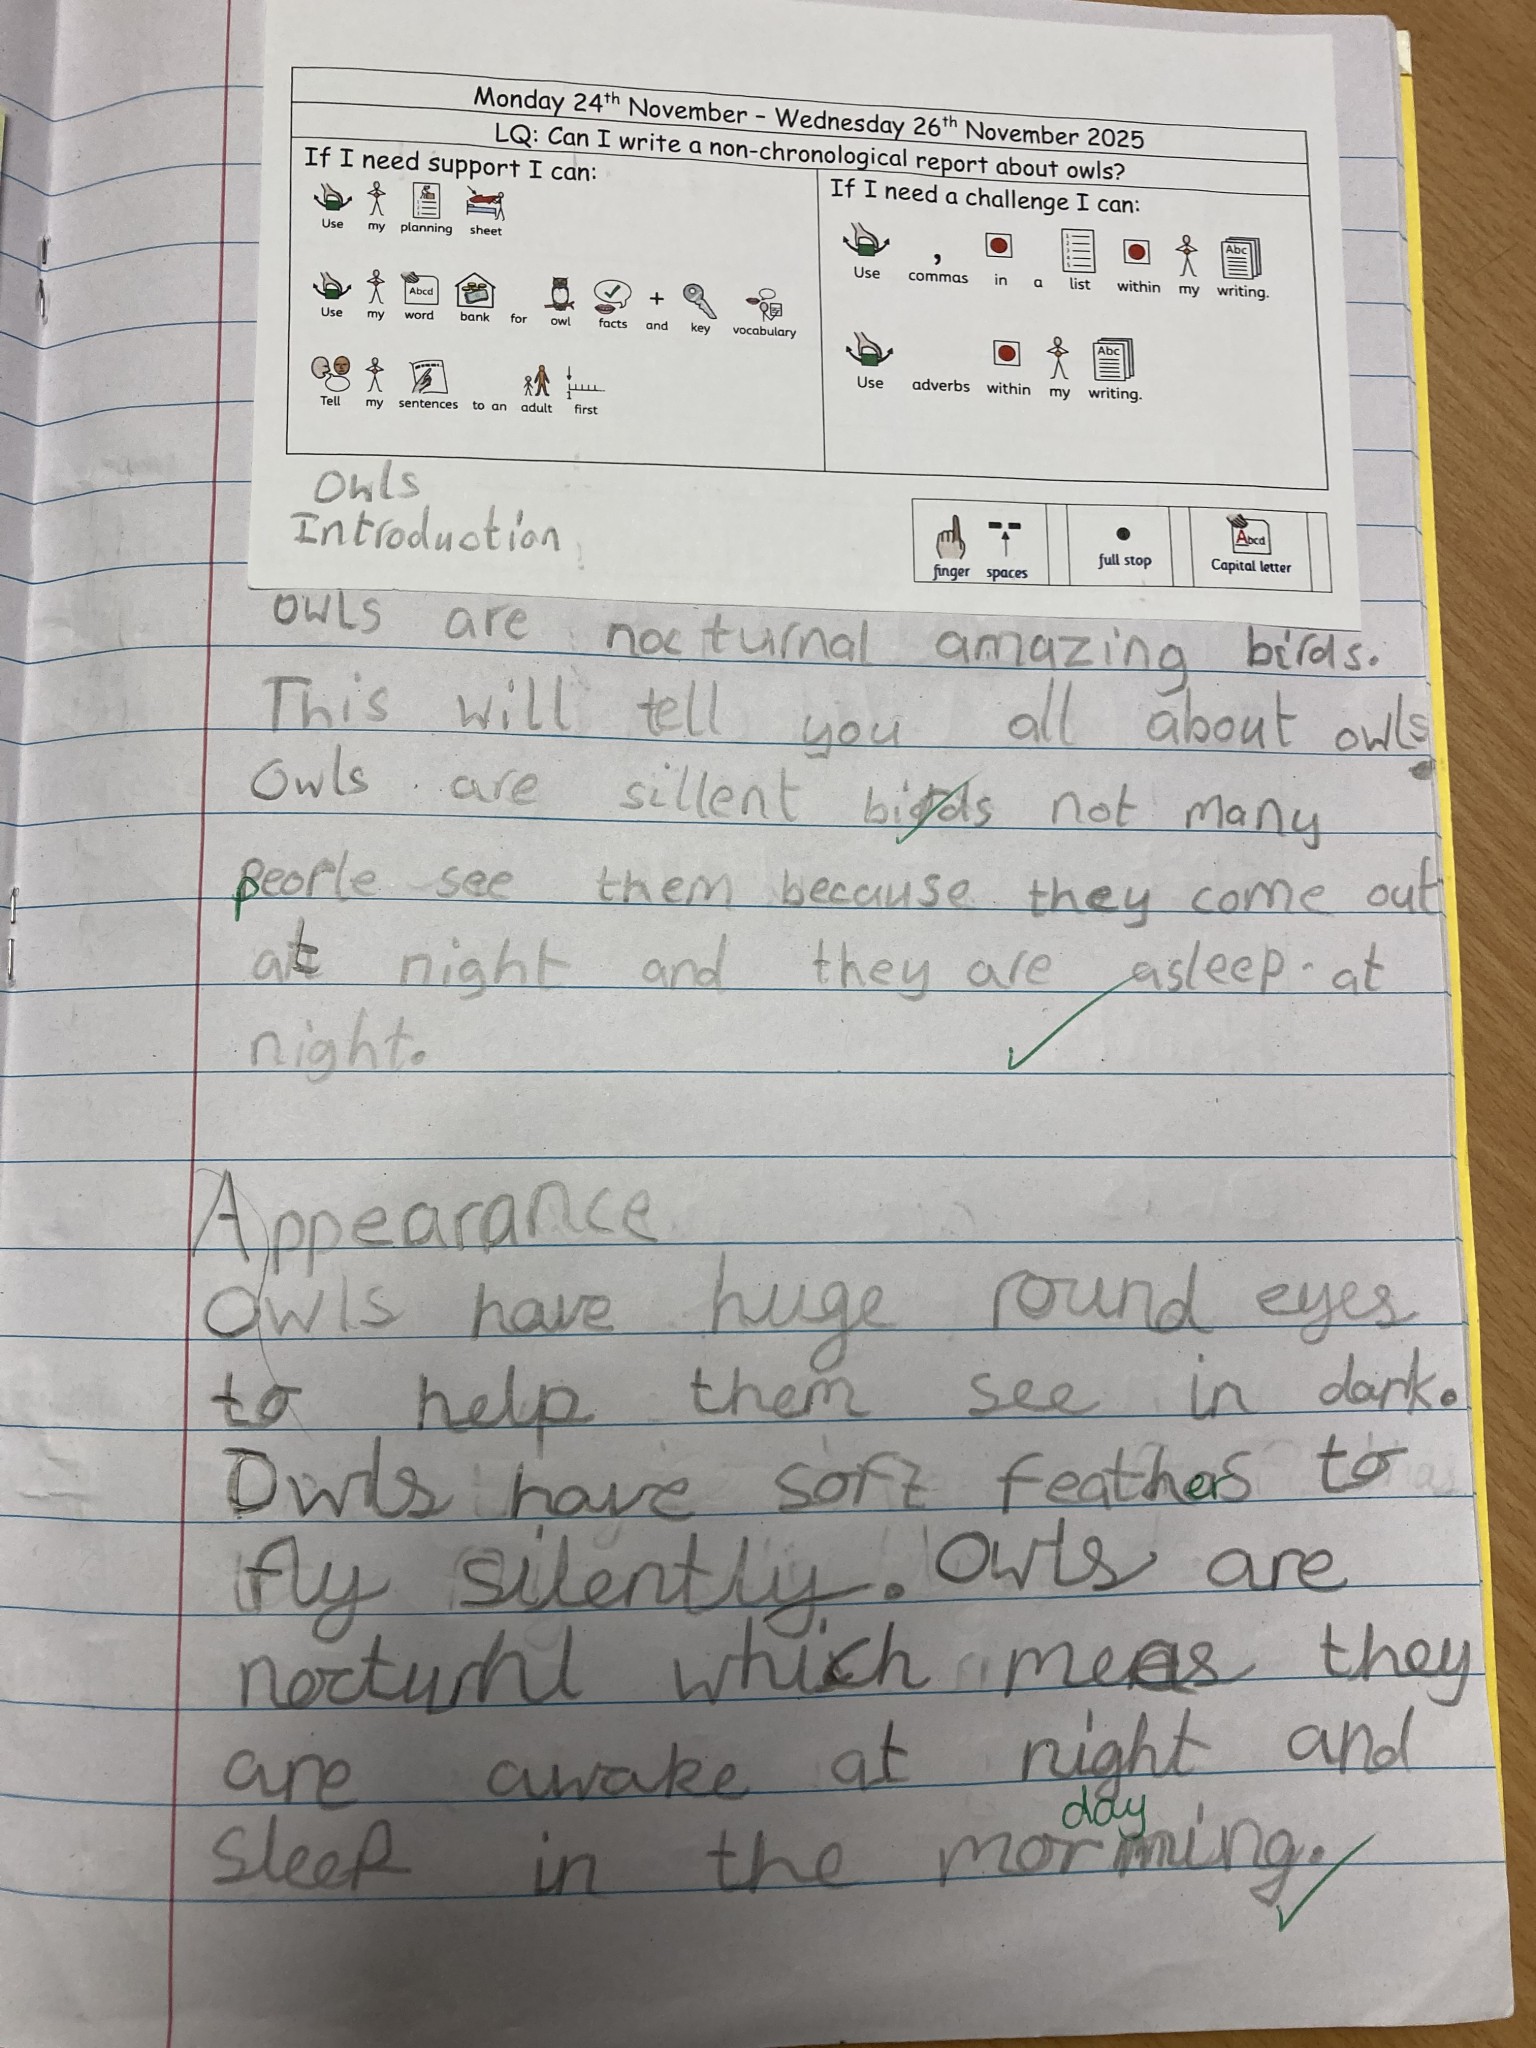 Monday 24th November - Wednesday 26th November 2025
LQ: Can I write a non-chronological report about owls?
If I need support I can:
Use my planning sheet
Use my word bank for owl facts and key vocabulary
Tell my sentences to an adult first
If I need a challenge I can:
Use , commas in a list within my writing.
Use adverbs within my writing.
Owls
Introduction
finger spaces
full stop
Capital letter
owls are nocturnal amazing birds.
This will tell you all about owls.
Owls are sillent birds not many
people see them because they come out
at night and they are asleep at
night.
Appearance
Owls have huge round eyes
to help them see in dark.
Owls have soft feathers to
fly silently. Owls are
nocturnl which meas they
are awake at night and
day
sleep in the morning.